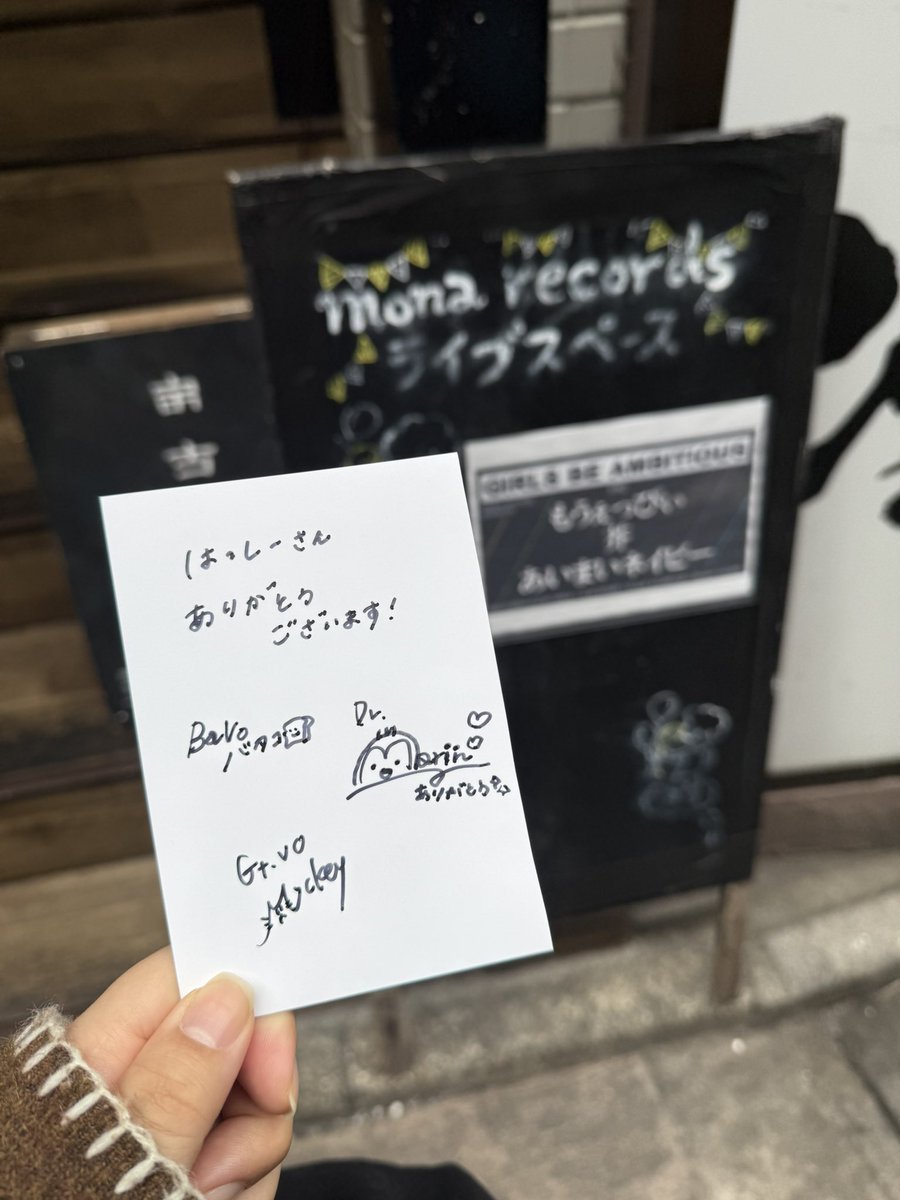 mona records
ライブスペース
GIRLS BE AMBITIOUS
もうぇっぴぃ
あいまいネイビー
はっしーさん
ありがとう
ございます!
BaVo
バタコ
Dr.
orin
ありがとう
Gt.vo